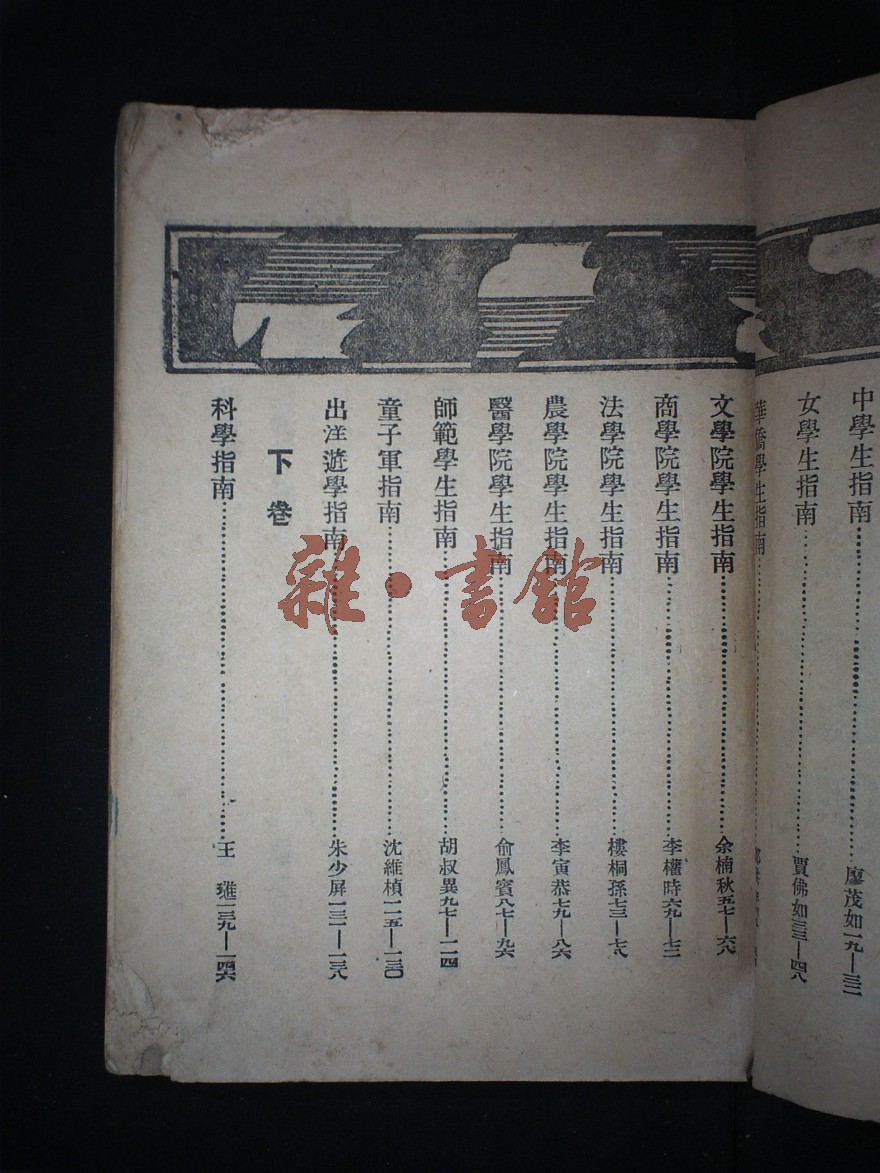 中學生指南……廖茂如一九—三二
女學生指南……賈佛如三三—四八
華僑學生指南……
文學院學生指南……余楠秋五七—六八
商學院學生指南……李權時六九—七二
法學院學生指南……樓桐孫七三—七八
農學院學生指南……李寅恭七九—八六
醫學院學生指南……俞鳳賓八七—九六
師範學生指南……胡叔異九七—一二四
童子軍指南……沈維楨一二五—一三〇
出洋遊學指南……朱少屏一三一—一三八
下卷
科學指南……王璡一三九—一四六
雜·書館